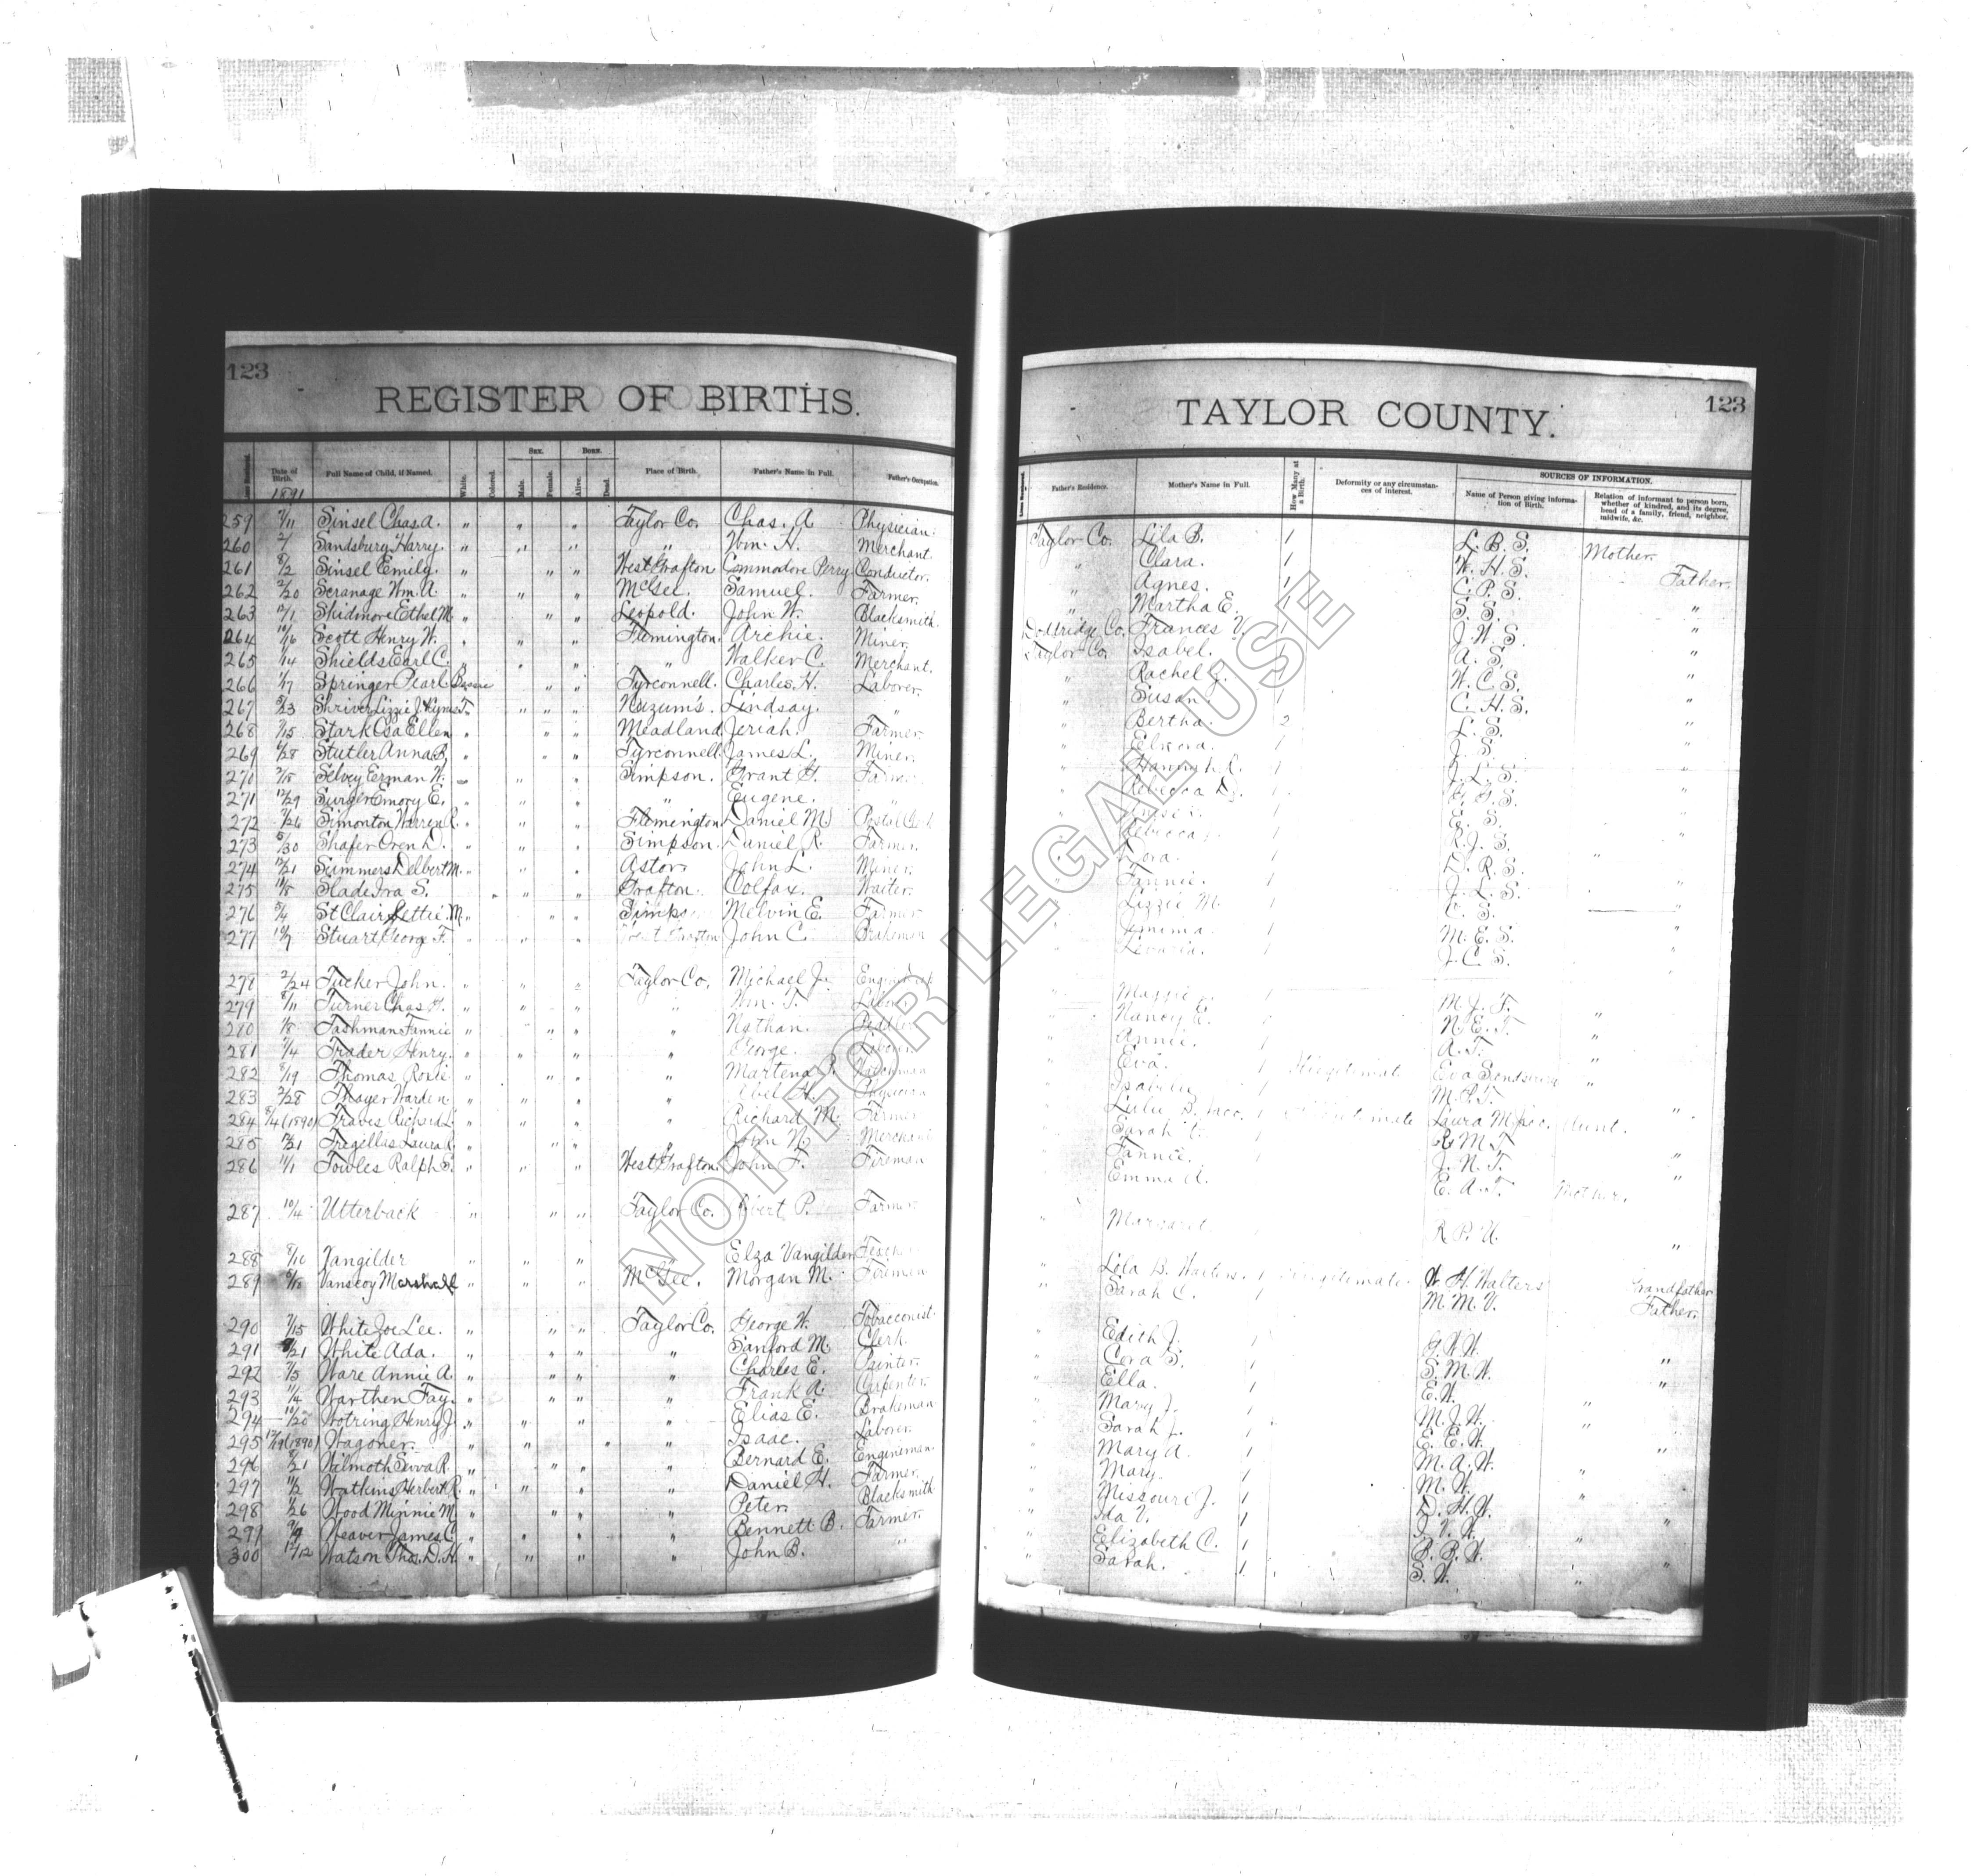 123
REGISTER OF BIRTHS.
Date of Birth. Full Name of Child, if Named. White. Colored. Sex. Male. Female. Born. Alive. Dead. Place of Birth. Father's Name in Full. Father's Occupation.
1891
259 7/11 Sinsel Chas. A. " " " Taylor Co. Chas. A Physician.
260 Sandsbury Harry. " " " " Wm. H. Merchant.
261 8/2 Sinsel Emily. " " " West Grafton Commodore Perry Conductor.
262 2/20 Scranage Wm. A. " " " McGee. Samuel. Farmer.
263 12/1 Skidmore Ethel M. " " " Leopold. John W. Blacksmith.
264 10/16 Scott Henry W. " " " Flemington. Archie. Miner.
265 1/14 Shields Earl C. " " " Walker C. Merchant.
266 1/17 Springer Pearl " " Tyrconnell. Charles. H. Laborer.
267 5/23 Shriver Lizzie J. " " " Nuzum's. Lindsay. "
268 7/15 Stark Osa Ellen " " " Meadland Jeriah. Farmer.
269 6/28 Stutler Anna B. " " " Tyrconnell James L. Miner.
270 Selvey Eerman W. " " " Simpson. Grant G.
271 12/29 Emory E. " " " " Eugene. "
272 7/26 Simonton Warren R. " " " Flemington Daniel M. Postal
273 5/30 Shafer Oren D. " " " Simpson. Daniel R. Farmer.
274 12/21 Summers Delbert M. " " " Astor. John L. Miner.
275 11/8 Slade Ira S. " " " Grafton. Colfax. Waiter.
276 5/4 St Clair Lettie. M. " " " Melvin E. Farmer
277 10/7 Stuart George F. " " " West Grafton John C. Brakeman
278 2/24 Tucker John. " " " Taylor Co. Michael J.
279 8/11 Turner Chas. H. " " " " Wm. T. Laborer
280 1/8 Tashman Fannie " " " " Nathan. Peddler
281 7/4 Trader Henry. " " " " George. Laborer
282 8/19 Thomas Rosie " " " " Martena P. Watchman
283 2/28 Thayer Warden " " " " Abel H. Physician
284 8/4 (1890) Traves Richard L. " " " " Richard M. Farmer
285 12/21 Tregillus Laura C. " " " " John N. Merchant
286 11/1 Towles Ralph E. " " " West Grafton. John F. Fireman
287 10/4 Utterback " " " Taylor Co. P. Farmer.
288 8/16 Vangilder " " " Elza Vangilder
289 5/18 Vanscoy Marshall " " " McGee. Morgan M. Fireman
290 7/15 White Zoe Lee. " " " Taylor Co. George W. Tobacconist.
291 8/21 White Ada. " " " " Sanford M. Clerk.
292 7/5 Ware Annie A " " " " Charles E. Painter.
293 11/4 Warthen Fay. " " " " Frank A. Carpenter.
294 10/20 Wotring Henry J. " " " " Elias E. Brakeman
295 12/19 (1890) Wagoner. " " " " Isaac. Laborer.
296 8/21 Wilmoth R. " " " " Bernard E. Engineman.
297 11/2 Watkins Herbert R. " " " " Daniel H. Farmer.
298 1/26 Wood Minnie M. " " " " Peter. Blacksmith
299 Weaver James C. " " " " Bennett B. Farmer.
300 12/12 Watson Thos. D. H. " " " " John B. "
TAYLOR COUNTY.
123
Father's Residence. Mother's Name in Full. How Many at a Birth. Deformity or any circumstances of interest. SOURCES OF INFORMATION. Name of Person giving information of Birth. Relation of informant to person born, whether of kindred, and its degree, head of a family, friend, neighbor, midwife, &c.
Taylor Co. Lila B. 1 L. B. S. Mother.
" Clara. 1 W. H. S. Father.
" Agnes. 1 C. P. S. "
" Martha E. 1 S. S. "
Doddridge Co. Frances V. 1 J. W. S. "
Taylor Co. Isabel. 1 A. S. "
" Rachel J. 1 W. C. S. "
" Susan. 1 C. H. S. "
" Bertha. 2 L. S. "
" Elnora. 1 J. S. "
" Hannah C. 1 J. L. S. "
" Rebecca D. 1 G. G. S. "
1 E. S. "
Rebecca 1 R. J. S.
" Dora. 1 D. R. S. "
" Fannie. 1 J. L. S. "
" Lizzie M. 1 C. S. "
" Jemima 1 M. E. S. "
" 1 J. C. S. "
" Maggie 1 M. J. T. "
" Nancy E. 1 N. E. T. "
" Annie. 1 A. T. "
" Eva. 1 Illegitimate Eva
" 1 M. P. T. "
" Lulu B. 1 Illegitimate Laura M. Aunt.
" Sarah 1 R. M. T. "
" Fannie. 1 J. N. T. "
" Emma A. E. A. T. Mother.
" Margaret R. P. U. "
" Lola B. Walters. 1 Illegitimate. W. H. Walters Grandfather
" Sarah C. 1 M. M. V. Father.
" Edith J. 1 G. W. W. "
" Cora S. 1 S. M. W. "
" Ella. 1 E. W. "
" Mary J. 1 M. J. W. "
" Sarah J. 1 E. E. W. "
" Mary A. 1 M. A. W. "
" Mary. 1 M. W. "
" Missouri J. 1 D. H. W. "
" Ida V. 1 I. V. W. "
" Elizabeth C. 1 B. B. W. "
" Sarah. 1 S. W. "
NOT FOR LEGAL USE